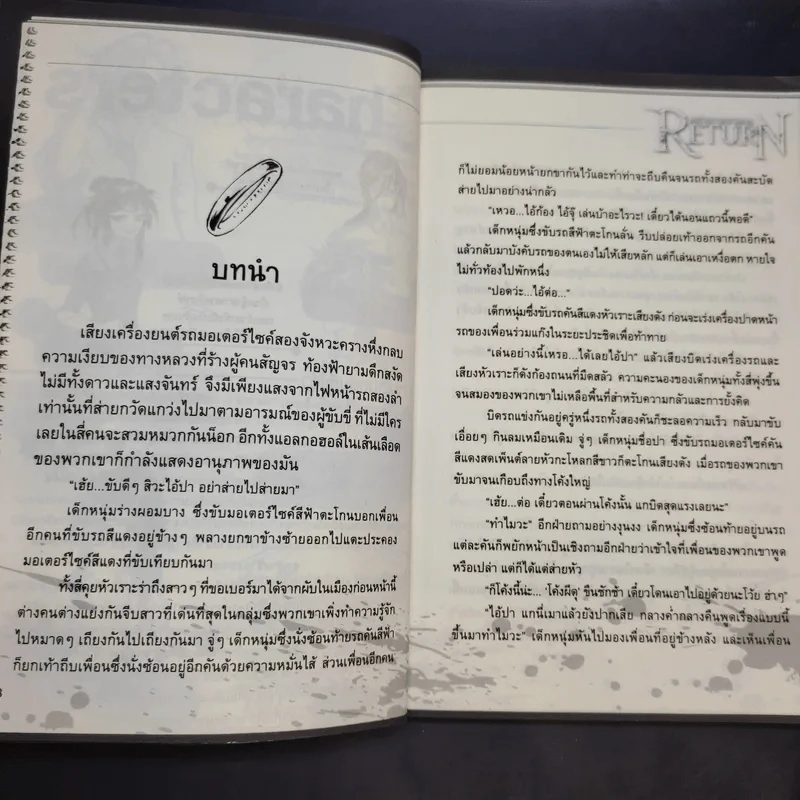 บทนำ
เสียงเครื่องยนต์รถมอเตอร์ไซค์สองจังหวะครางหึ่งกลบ
ความเงียบของทางหลวงที่ร้างผู้คนสัญจร ท้องฟ้ายามดึกสงัด
ไม่มีทั้งดาวและแสงจันทร์ จึงมีเพียงแสงจากไฟหน้ารถสองลำ
เท่านั้นที่ส่ายกวัดแกว่งไปมาตามอารมณ์ของผู้ขับขี่ ที่ไม่มีใคร
เลยในสี่คนจะสวมหมวกกันน็อก อีกทั้งแอลกอฮอล์ในเส้นเลือด
ของพวกเขาก็กำลังแสดงอานุภาพของมัน
“เฮ้ย...ขับดีๆ สิวะไอ้ปา อย่าส่ายไปส่ายมา”
เด็กหนุ่มร่างผอมบาง ซึ่งขับมอเตอร์ไซค์สีฟ้าตะโกนบอกเพื่อน
อีกคนที่ขับรถสีแดงอยู่ข้างๆ พลางยกขาข้างซ้ายออกไปแตะประคอง
มอเตอร์ไซค์สีแดงที่ขับเทียบกันมา
ทั้งสี่คุยหัวเราะร่าถึงสาวๆ ที่ขอเบอร์มาได้จากผับในเมืองก่อนหน้านี้
ต่างคนต่างแย่งกันจีบสาวที่เด่นที่สุดในกลุ่มซึ่งพวกเขาเพิ่งทำความรู้จัก
ไปหมาดๆ เถียงกันไปเถียงกันมา จู่ๆ เด็กหนุ่มซึ่งนั่งซ้อนท้ายรถคันสีฟ้า
ก็ยกเท้าถีบเพื่อนซึ่งนั่งซ้อนอยู่อีกคันด้วยความหมั่นไส้ ส่วนเพื่อนอีกคน
RETURN
ก็ไม่ยอมน้อยหน้ายกขากันไว้และทำท่าจะถีบคืนจนรถทั้งสองคันสะบัด
ส่ายไปมาอย่างน่ากลัว
“เหวอ...ไอ้ก้อง ไอ้จุ๊ เล่นบ้าอะไรวะ! เดี๋ยวได้นอนแถวนี้พอดี”
เด็กหนุ่มซึ่งขับรถสีฟ้าตะโกนลั่น รีบปล่อยเท้าออกจากรถอีกคัน
แล้วกลับมาบังคับรถของตนเองไม่ให้เสียหลัก แต่ก็เล่นเอาเหงื่อตก หายใจ
ไม่ทั่วท้องไปพักหนึ่ง
“ปอดว่ะ...ไอ้ต่อ...”
เด็กหนุ่มซึ่งขับรถคันสีแดงหัวเราะเสียงดัง ก่อนจะเร่งเครื่องปาดหน้า
รถของเพื่อนร่วมแก๊งในระยะประชิดเพื่อท้าทาย
“เล่นอย่างนี้เหรอ...ได้เลยไอ้ปา” แล้วเสียงบิดเร่งเครื่องรถและ
เสียงหัวเราะก็ดังก้องถนนที่มืดสลัว ความคะนองของเด็กหนุ่มทั้งสี่พุ่งขึ้น
จนสมองของพวกเขาไม่เหลือพื้นที่สำหรับความกลัวและการยั้งคิด
บิดรถแข่งกันอยู่ครู่หนึ่งรถทั้งสองคันก็ชะลอความเร็ว กลับมาขับ
เอื่อยๆ กินลมเหมือนเดิม จู่ๆ เด็กหนุ่มชื่อปา ซึ่งขับรถมอเตอร์ไซค์คัน
สีแดงสดเพ้นต์ลายหัวกะโหลกสีขาวก็ตะโกนเสียงดัง เมื่อรถของพวกเขา
ขับมาจนเกือบถึงทางโค้งใหญ่
“เฮ้ย...ต่อ เดี๋ยวตอนผ่านโค้งนั้น แกบิดสุดแรงเลยนะ”
“ทำไมวะ” อีกฝ่ายถามอย่างงุนงง เด็กหนุ่มซึ่งซ้อนท้ายอยู่บนรถ
แต่ละคันก็พยักหน้าเป็นเชิงถามอีกฝ่ายว่าเข้าใจที่เพื่อนของพวกเขาพูด
หรือเปล่า แต่ก็ได้แต่ส่ายหัว
“ก็โค้งนี้น่ะ... ‘โค้งผีดุ’ ขืนชักช้า เดี๋ยวโดนเอาไปอยู่ด้วยนะโว้ย ฮ่าๆ”
“ไอ้ปา แกนี่เมาแล้วยังปากเสีย กลางค่ำกลางคืนพูดเรื่องแบบนี้
ขึ้นมาทำไมวะ” เด็กหนุ่มหันไปมองเพื่อนที่อยู่ข้างหลัง และเห็นเพื่อน